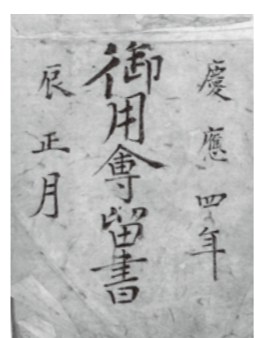 慶應四年
御用會留書
辰正月